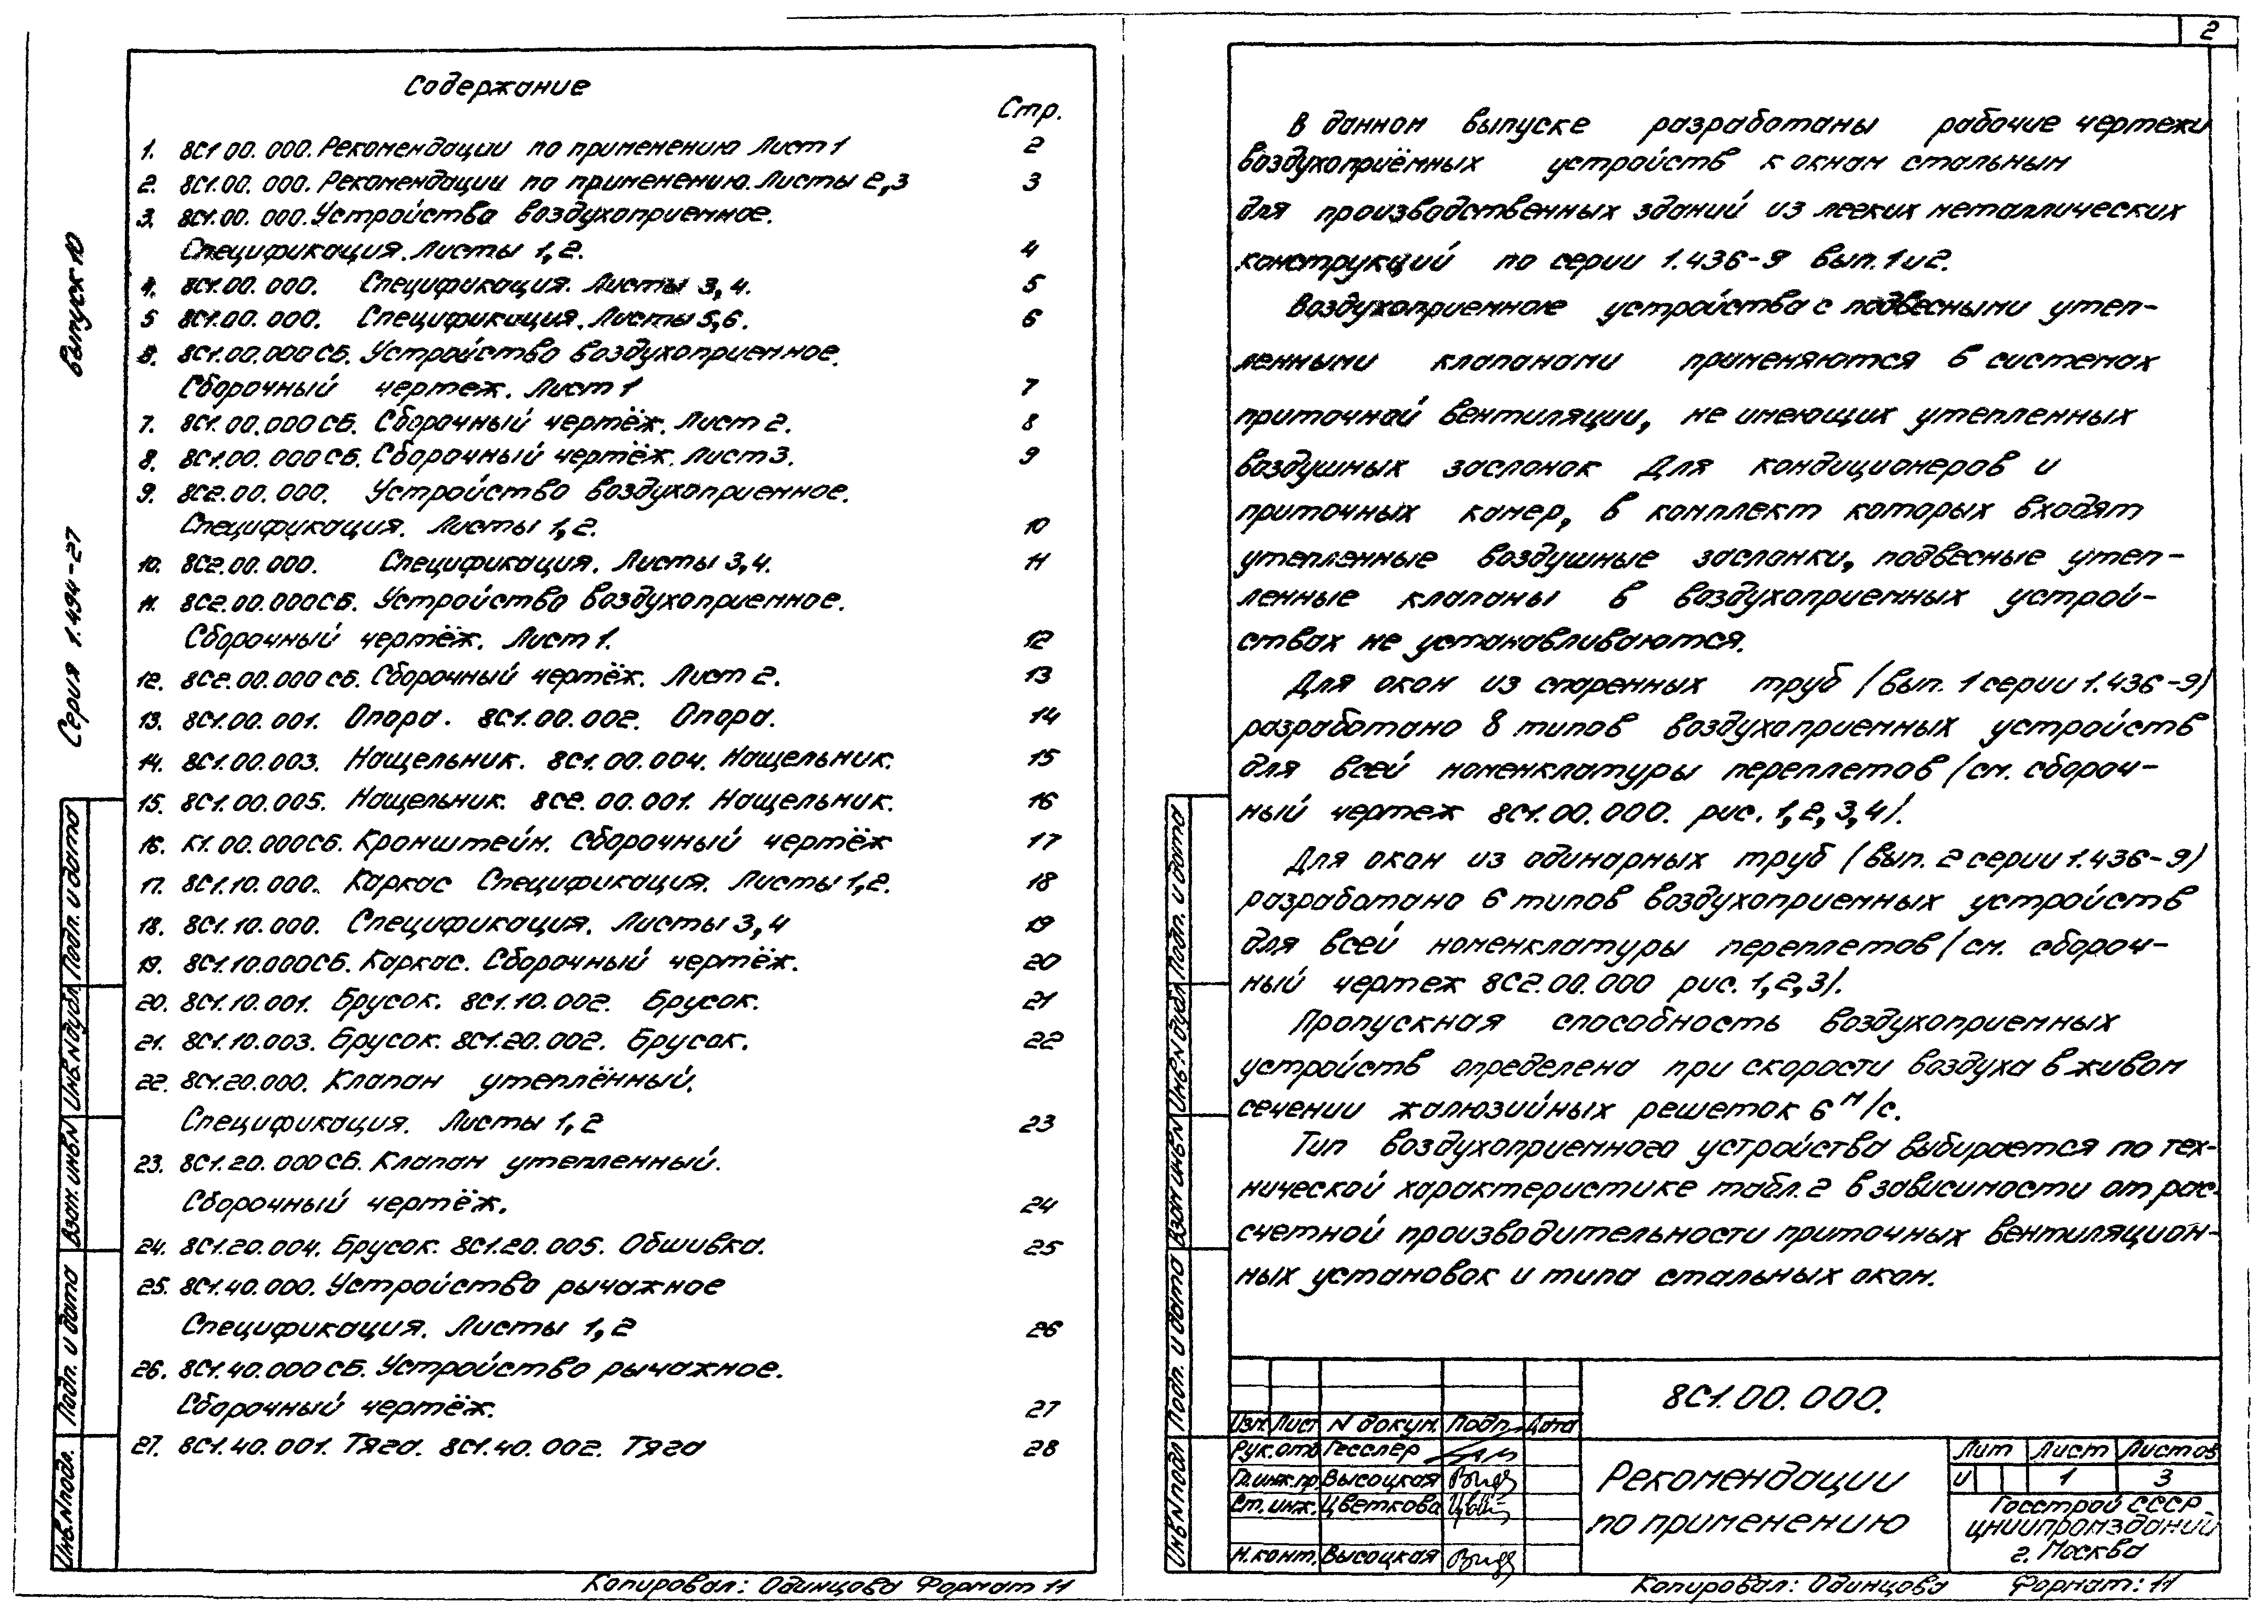 2
Содержание
Стр.
1. 8С1 00. 000. Рекомендации по применению Лист 1 2
2. 8С1.00. 000. Рекомендации по применению. Листы 2,3 3
3. 8С1.00. 000. Устройства воздухоприемное.
Спецификация. Листы 1,2. 4
4. 8С1.00. 000. Спецификация. Листы 3,4. 5
5 8С1.00. 000. Спецификация. Листы 5,6. 6
6. 8С1.00.000 СБ. Устройство воздухоприемное.
Сборочный чертеж. Лист 1 7
7. 8С1.00.000 СБ. Сборочный чертёж. Лист 2. 8
8. 8С1.00. 000 СБ. Сборочный чертёж. Лист 3. 9
9. 8С2.00. 000. Устройство воздухоприемное.
Спецификация. Листы 1,2. 10
10. 8С2.00.000. Спецификация. Листы 3,4. 11
11. 8С2.00.000СБ. Устройство воздухоприемное.
Сборочный чертёж. Лист 1. 12
12. 8С2.00.000 СБ. Сборочный чертёж. Лист 2. 13
13. 8С1.00.001. Опора. 8С1.00.002. Опора. 14
14. 8С1.00.003. Нащельник. 8С1.00.004. Нащельник. 15
15. 8С1.00.005. Нащельник. 8С2.00.001. Нащельник. 16
16. К1.00.000СБ. Кронштейн. Сборочный чертёж 17
17. 8С1.10.000. Каркас Спецификация. Листы 1,2. 18
18. 8С1.10.000. Спецификация. Листы 3,4 19
19. 8С1.10.000СБ. Каркас. Сборочный чертёж. 20
20. 8С1.10.001. Брусок. 8С1.10.002. Брусок. 21
21. 8С1.10.003. Брусок. 8С1.20.002. Брусок. 22
22. 8С1.20.000. Клапан утеплённый.
Спецификация. Листы 1,2 23
23. 8С1.20.000 СБ. Клапан утепленный.
Сборочный чертёж. 24
24. 8С1.20.004. Брусок. 8С1.20.005. Обшивка. 25
25. 8С1.40.000. Устройство рычажное
Спецификация. Листы 1,2 26
26. 8С1.40.000 СБ. Устройство рычажное.
Сборочный чертёж. 27
27. 8С1.40.001. Тяга. 8С1.40.002. Тяга 28
Серия 1.494-27 выпуск 10
Инв.N подл. Подп. и дата Взам. инв.N Инв.N дубл. Подп. и дата
Копировал: Одинцова Формат 11
В данном выпуске разработаны рабочие чертежи
воздухоприёмных устройств к окнам стальным
для производственных зданий из легких металлических
конструкций по серии 1.436-9 вып. 1 и 2.
Воздухоприемные устройства с подвесными утеп-
ленными клапанами применяются в системах
приточной вентиляции, не имеющих утепленных
воздушных заслонок Для кондиционеров и
приточных камер, в комплект которых входят
утепленные воздушные заслонки, подвесные утеп-
ленные клапаны в воздухоприемных устрой-
ствах не устанавливаются.
Для окон из спаренных труб (вып. 1 серии 1.436-9)
разработано 8 типов воздухоприемных устройств
для всей номенклатуры переплетов (см. сбороч-
ный чертеж 8С1.00.000. рис. 1,2,3,4).
Для окон из одинарных труб (вып. 2 серии 1.436-9)
разработано 6 типов воздухоприемных устройств
для всей номенклатуры переплетов (см. сбороч-
ный чертеж 8С2.00.000 рис. 1,2,3).
Пропускная способность воздухоприемных
устройств определена при скорости воздуха в живом
сечении жалюзийных решеток 6 м/с.
Тип воздухоприемного устройства выбирается по тех-
нической характеристике табл. 2 в зависимости от рас-
счетной производительности приточных вентиляцион-
ных установок и типа стальных окон.
Инв.N подл Подп. и дата Взам инв.N Инв.N дубл. Подп. и дата
Изм. Лист N докум. Подп. Дата
Рук. отд Гесслер
Гл.инж.пр. Высоцкая
Ст. инж. Цветкова
Н.конт. Высоцкая
8С1.00.000.
Рекомендации
по применению
Лит Лист Листов
И 1 3
Госстрой СССР
ЦНИИпромзданий
г. Москва
Копировал: Одинцова Формат: 11